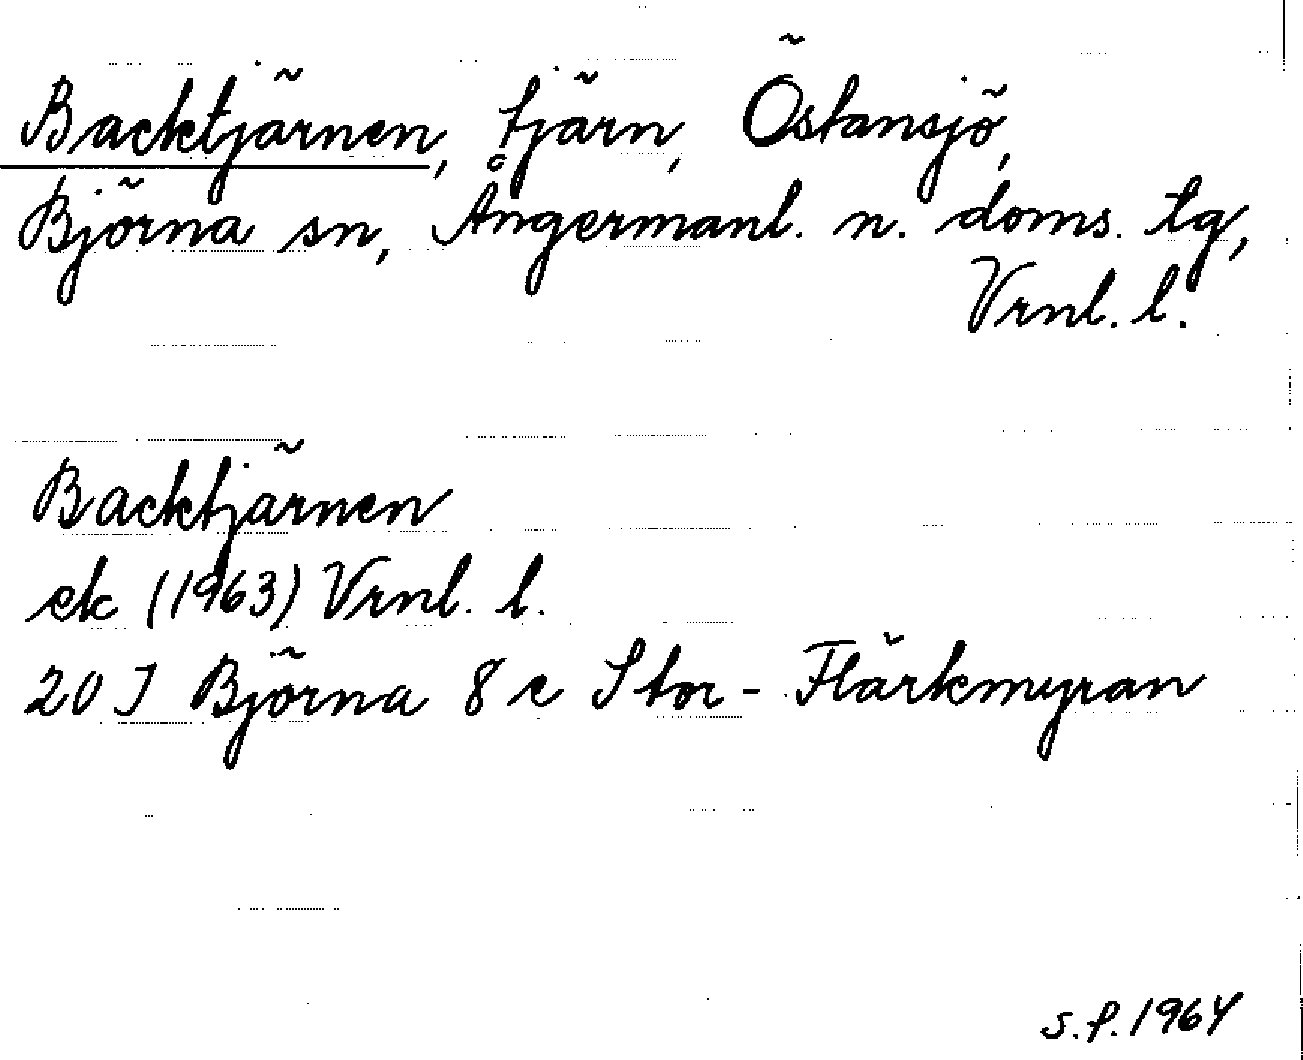 Backtjärnen, tjärn, Östansjö,
Björna sn, Ångermanl. n. doms. tg,
Vrnl. l.
Backtjärnen
ek (1963) Vrnl. l.
20 J Björna 8 e Stor-Flärkmyran
s.f. 1964